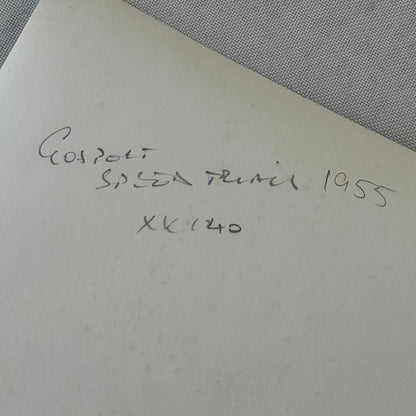 Gosport
SPEED TRIALS 1955
XK 140